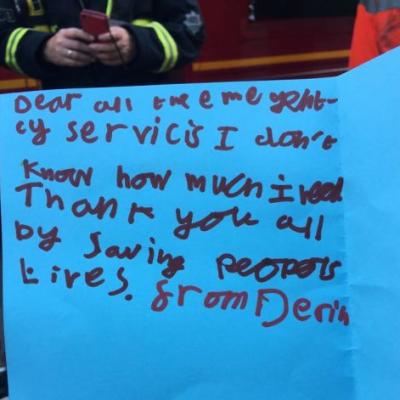 Dear all the emeygent-
cy servicis I don't
know how much i need
Thank you all
by saving peopels
lives. from Derin